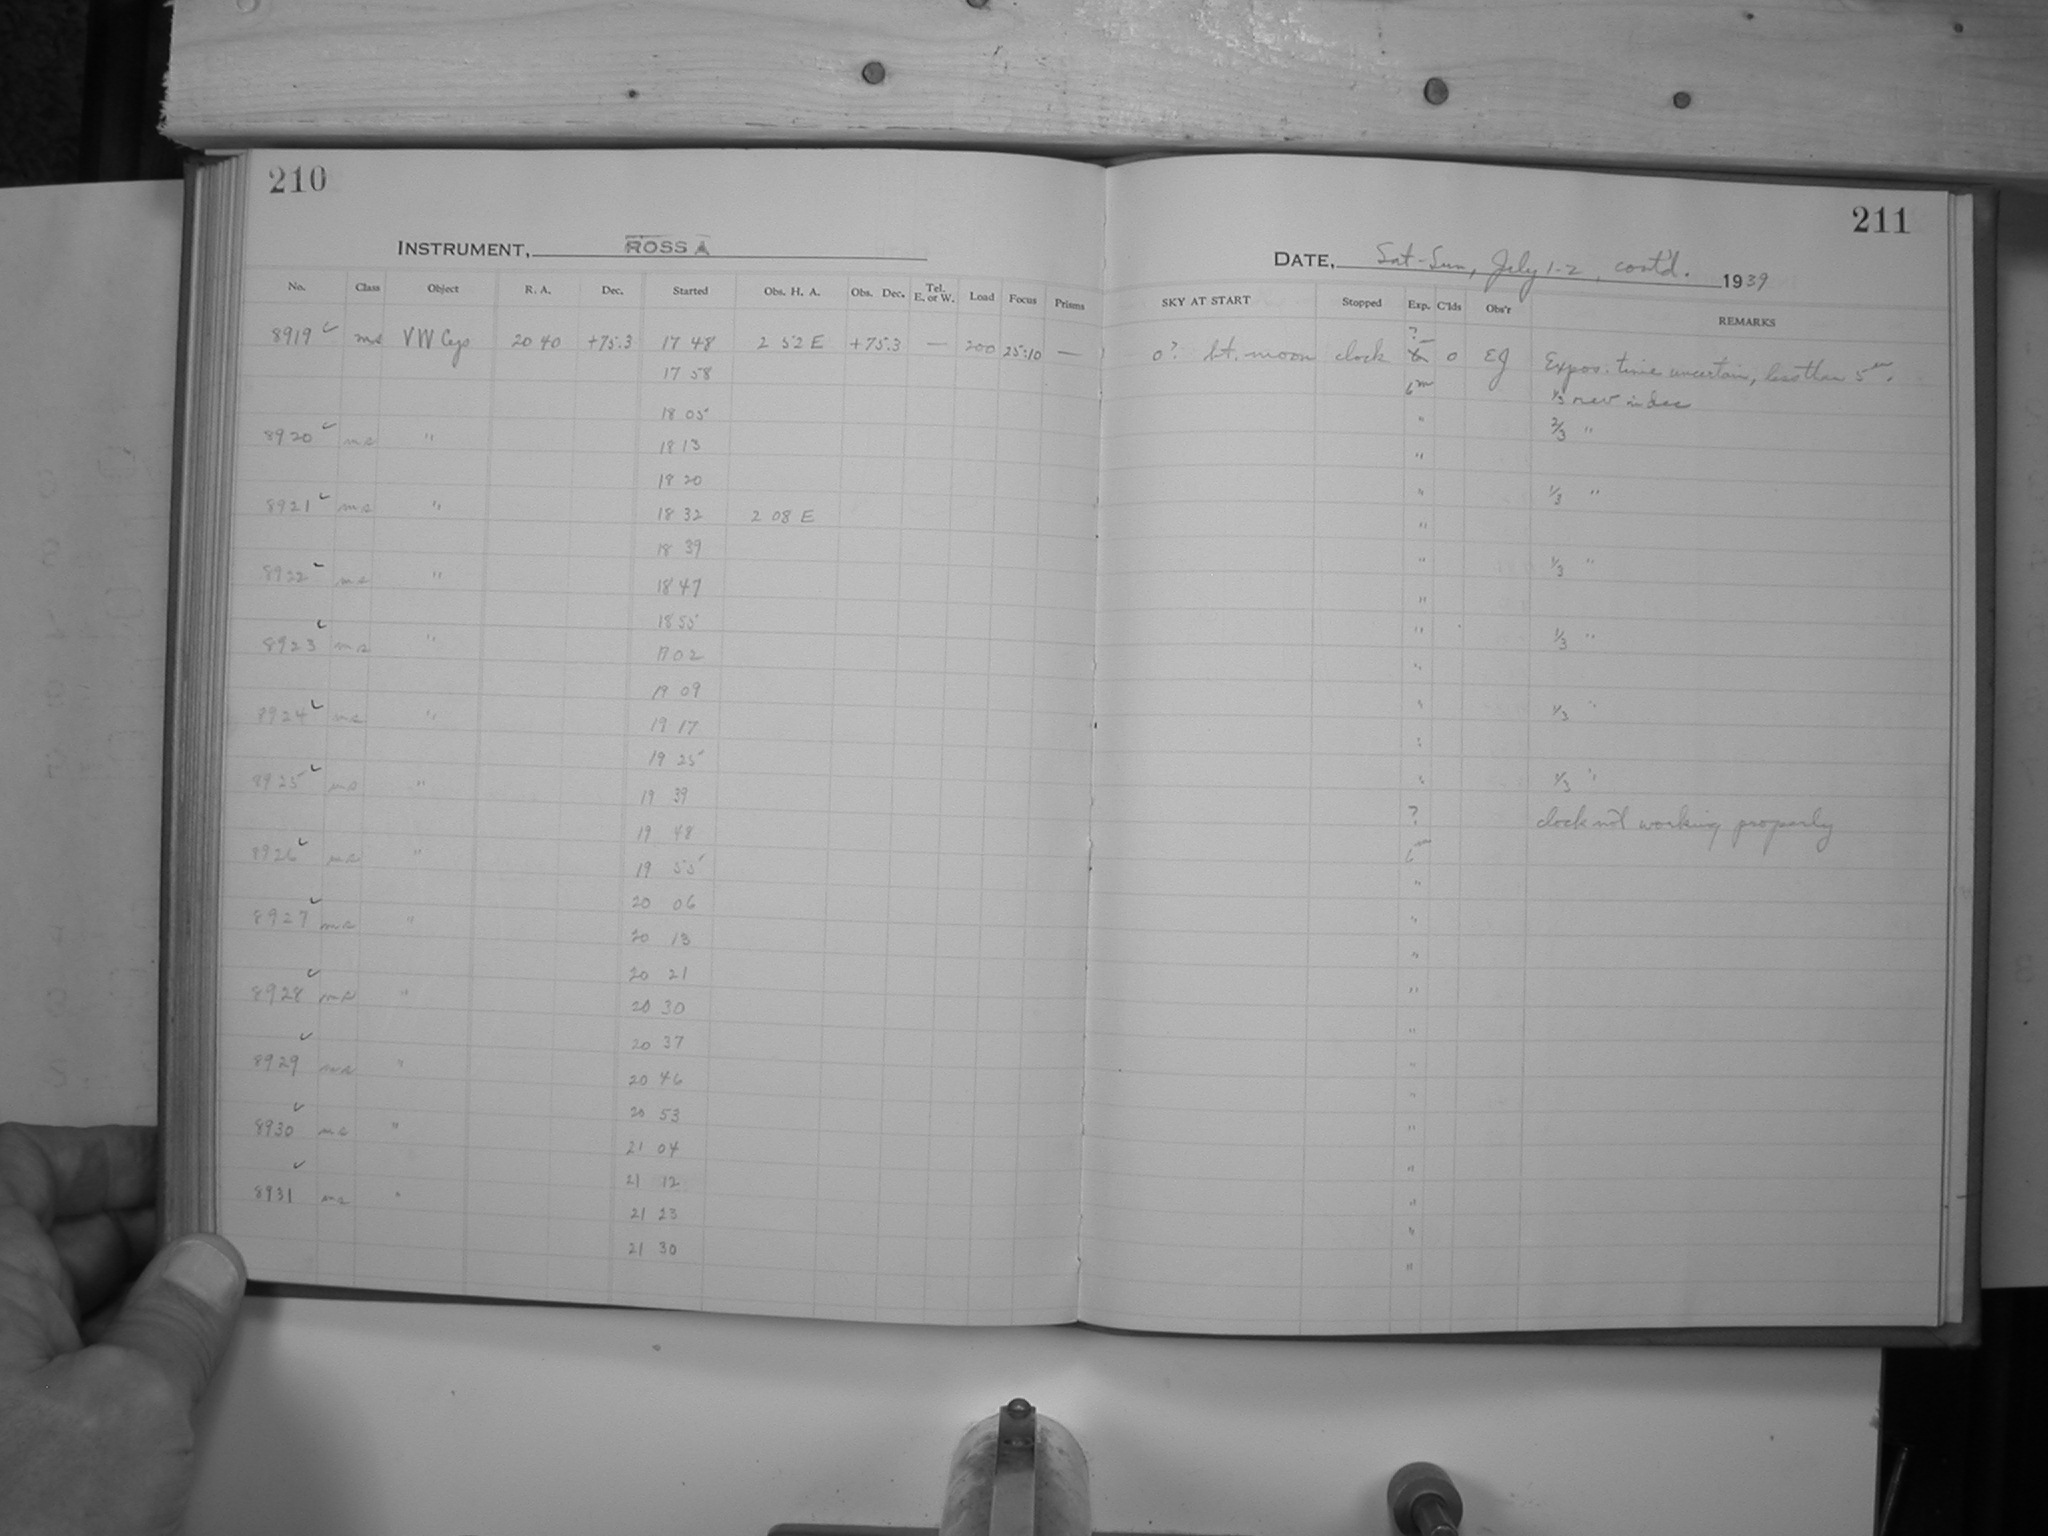 210
INSTRUMENT, ROSS A
No. Class Object R. A. Dec. Started Obs. H. A. Obs. Dec. Tel. E. or W. Load Focus Prisms
8919 ✓ ms VW Ceps 20 40 +75.3 17 48 2 52 E +75.3 — 200 25:10 —
17 58
18 05
8920 ✓ ms " 18 13
18 20
8921 ✓ ms " 18 32 2 08 E
18 39
8922 ✓ ms " 18 47
18 55
8923 ✓ ms " 19 02
19 09
8924 ✓ ms " 19 17
19 25
8925 ✓ ms " 19 39
19 48
8926 ✓ ms " 19 55
20 06
8927 ✓ ms " 20 13
20 21
8928 ✓ ms " 20 30
20 37
8929 ✓ ms " 20 46
20 53
8930 ✓ ms " 21 04
21 12
8931 ✓ ms " 21 23
21 30
211
DATE, Sat-Sun, July 1-2, cont'd. 1939
SKY AT START Stopped Exp. C'lds Obs'r REMARKS
0? bt. moon clock ? 0 EJ Expos. time uncertain, less than 5m.
6m 1/3 rev in dec
" 2/3 "
"
" 1/3 "
"
" 1/3 "
"
" 1/3 "
"
" 1/3 "
"
" 1/3 "
? clock not working properly
6m
"
"
"
"
"
"
"
"
"
"
"
"